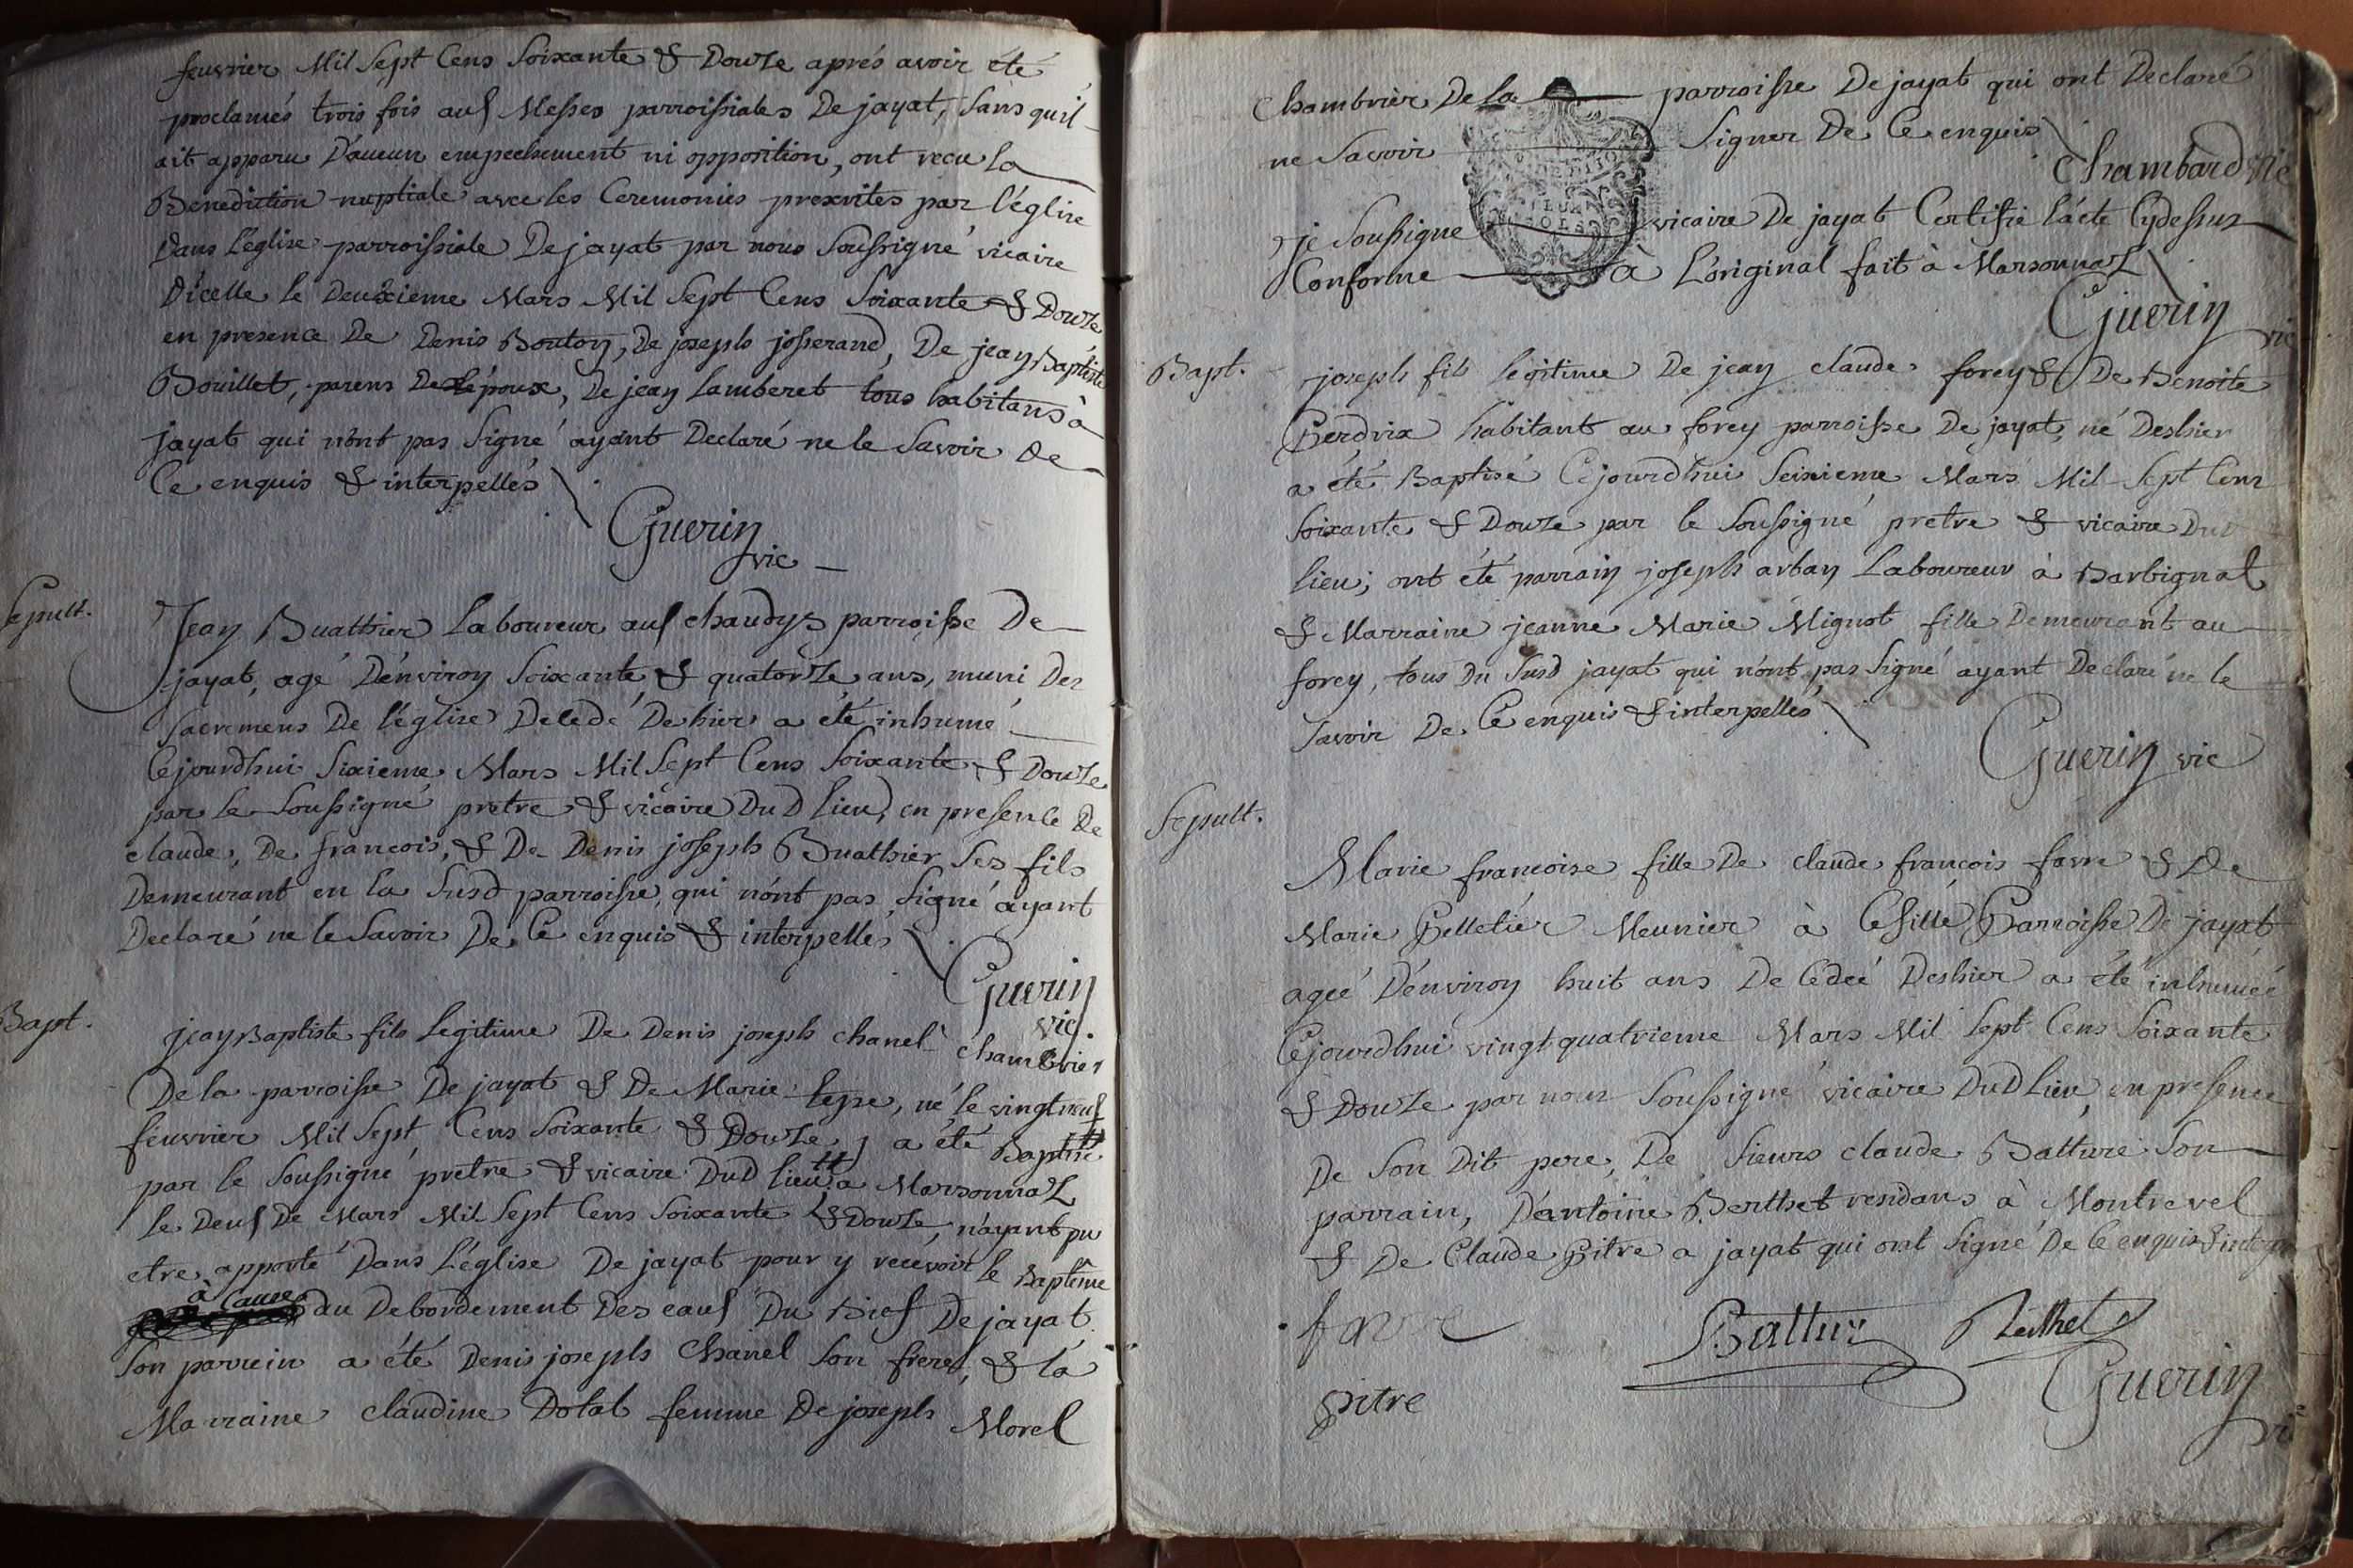 feuvrier Mil Sept Cens Soixante & Douze aprés avoir été
proclamés trois fois aux Messes parroissiales De jayat, Sans quil
ait apparu D'aucun empechement ni opposition, ont recu la
Benediction nuptiale avec les Ceremonies prexcrites par l'église
Dans L'église parroissiale De jayat par nous Soussigné vicaire
D'icelle le Deuxieme Mars Mil Sept Cens Soixante & Douze
en presence De Denis Bouton, De joseph josserand, De jean Baptiste
Bouillet, parens De L'époux, De jean Lamberet tous habitans à
jayat qui n'ont pas Signé ayant Declaré ne le Savoir De
Ce enquis & interpellés
Guerin
vic
Sepult.
Jean Buathier Laboureur aux chaudys parroisse De
jayat, agé D'environ Soixante & quatorze ans, muni Des
Sacremens De l'église Decedé De hier a été inhumé
Cejourdhui Sixieme Mars Mil Sept Cens Soixante & Douze
par le Soussigné pretre & vicaire DuD lieu, en presence De
claude, De francois, & De Denis joseph Buathier Ses fils
Demeurant en la Susd parroisse, qui n'ont pas Signé ayant
Declaré ne le Savoir De Ce enquis & interpelles
Guerin
vic.
Bapt.
jean Baptiste fils Legitime De Denis joseph chanel chambrier
De la parroisse De jayat & De Marie tepe, né le vingt neuf
feuvrier Mil Sept Cens Soixante & Douze, a été Baptisé
par le Soussigné pretre & vicaire DuD lieu a Marsonnaz
le Deux De Mars Mil Sept Cens Soixante & Douze, n'ayant pu
etre apporté Dans L'église De jayat pour y recevoir le Baptême
à Cause du Debordement Des eaux Du Bief De jayat
Son parrein a été Denis joseph Chanel Son frere, & la
Marraine claudine Dotal femme De joseph Morel
Chambrier De la parroisse De jayat qui ont Declaré
ne Savoir Signer De Ce enquis
Chambard vic
je Soussigné vicaire De jayat Certifie l'acte Cydessus
Conforme à L'original fait à Marsonnaz
Guerin
vic
Bapt.
joseph fils legitime De jean claude forey & De Benoite
Perdrix habitant au forey parroisse De jayat, né Deshier
a été Baptisé Cejourdhui Seizieme Mars Mil Sept Cens
Soixante & Douze par le Soussigné pretre & vicaire Dud
lieu; ont été parrain joseph arban Laboureur à Barbignat
& Marraine jeanne Marie Mignot fille Demeurant au
forey, tous Du Susd jayat qui n'ont pas Signé ayant Declaré ne le
Savoir De Ce enquis & interpellés
Guerin vic
Sepult.
Marie francoise fille De claude francois favre & De
Marie Pelletier Meunier à Cesille Parroisse De jayat
ageé D'environ huit ans Decedeé Deshier a été inhumeé
Cejourdhui vingt quatrieme Mars Mil Sept Cens Soixante
& Douze par nous Soussigné vicaire DuD lieu, en presence
De Son Dit pere, De Sieurs claude Batture Son
parrain, D'antoine Berthet residans à Montrevel
& De Claude Pitre a jayat qui ont Signé De Ce enquis &
favre
Battur
Berthet
Guerin
vic
pitre